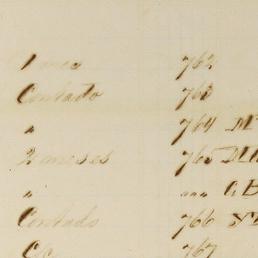 1 mes 762
Contado 763
" 764 M
2 meses 765 DM
" " CB
Contado 766
767